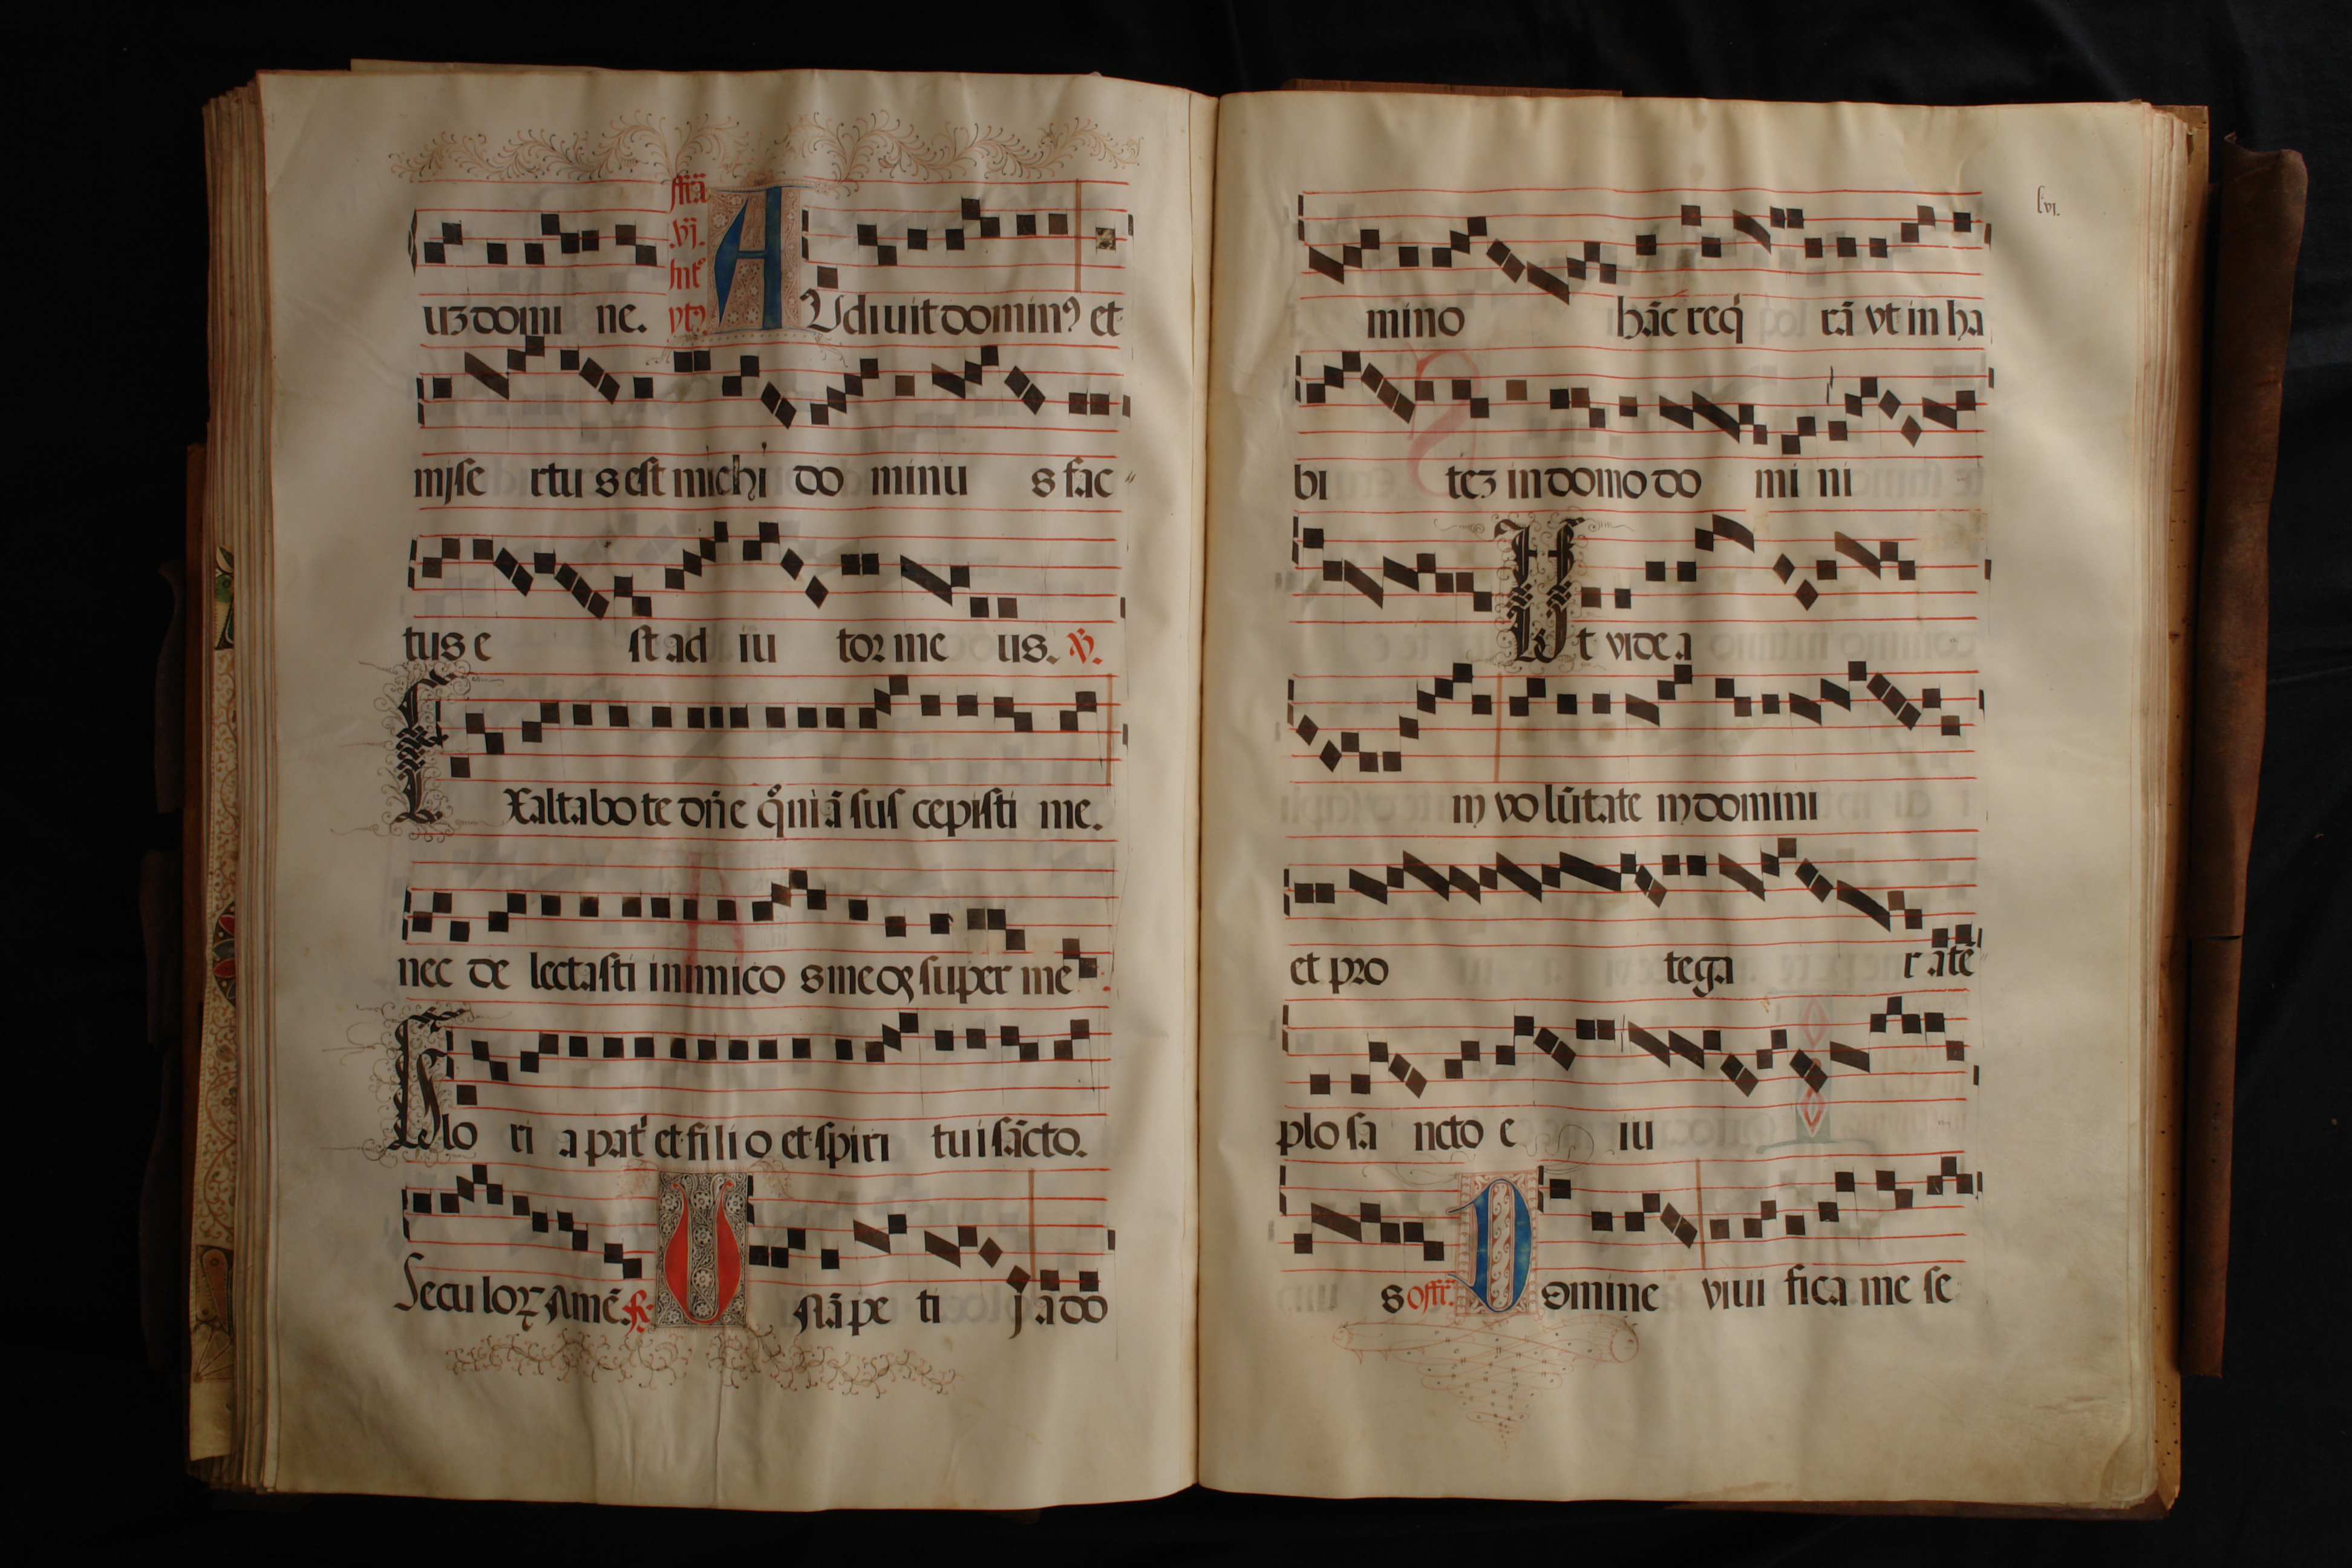 uz domi ne. ffiã .vj. Int͂ ytꝰ AUdiuit dominꝰ et
mise rtu s est michi do minu s fac
tus e st ad iu tor me us. ℣.
EXaltabo te dñe qͦniã sus cepisti me.
nec de lectasti inimico s meoꝝ super me
Glo ri a pat͛ et filio et spiri tui sãcto.
Seculoꝝ Amẽ. ℟. UNã pe ti j ã do
lvi.
mino hãc req͛ rã vt in ha
bi tez in domo do mi ni
Ut videa
m vo lũtate m domini
et pro tega r a tẽ
plo sa ncto e iu
s offr̃. DOmine viui fica me se